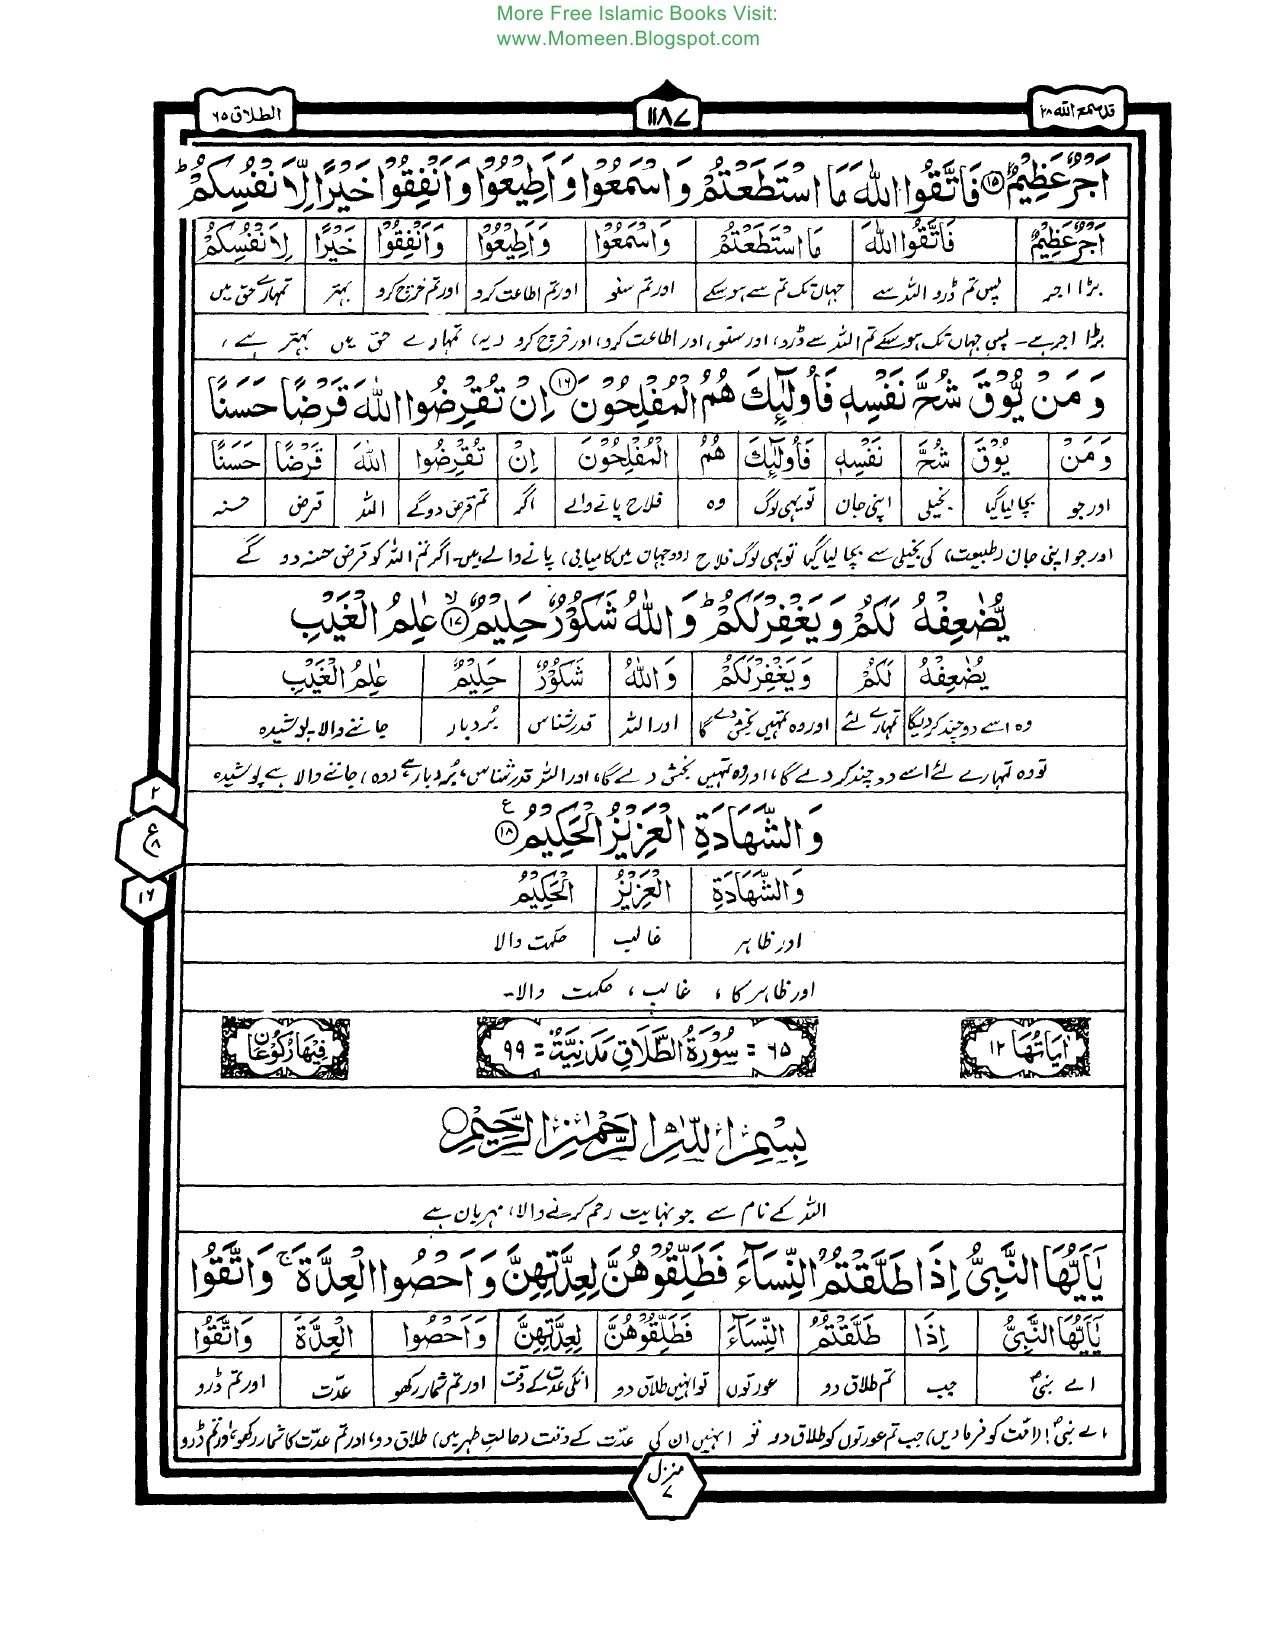 More Free Islamic Books Visit:
www.Momeen.Blogspot.com
قد سمع الله ۲۸
۱۱۸۷
الطلاق ۶۵
اَجْرٌ عَظِيْمٌ ۱۵ فَاتَّقُوا اللّٰهَ مَا اسْتَطَعْتُمْ وَاسْمَعُوْا وَاَطِيْعُوْا وَاَنْفِقُوْا خَيْرًا لِّاَنْفُسِكُمْ ؕ
اَجْرٌ عَظِيْمٌ فَاتَّقُوا اللّٰهَ مَا اسْتَطَعْتُمْ وَاسْمَعُوْا وَاَطِيْعُوْا وَاَنْفِقُوْا خَيْرًا لِاَنْفُسِكُمْ
بڑا اجر پس تم ڈرو اللہ سے جہاں تک تم سے ہو سکے اور تم سنو اور تم اطاعت کرو اور تم خرچ کرو بہتر تمہارے حق میں
بڑا اجر ہے۔ پس جہاں تک ہو سکے تم اللہ سے ڈرو، اور سنو، اور اطاعت کرو، اور خرچ کرو (یہ) تمہارے حق میں بہتر ہے،
وَمَنْ يُّوْقَ شُحَّ نَفْسِهٖ فَاُولٰٓئِكَ هُمُ الْمُفْلِحُوْنَ ۱۶ اِنْ تُقْرِضُوا اللّٰهَ قَرْضًا حَسَنًا
وَمَنْ يُّوْقَ شُحَّ نَفْسِهٖ فَاُولٰٓئِكَ هُمُ الْمُفْلِحُوْنَ اِنْ تُقْرِضُوا اللّٰهَ قَرْضًا حَسَنًا
اور جو بچا لیا گیا بخیلی اپنی جان تو یہی لوگ وہ فلاح پانے والے اگر تم قرض دو گے اللہ قرض حسنہ
اور جو اپنی جان (طبیعت) کی بخیلی سے بچا لیا گیا تو یہی لوگ فلاح (دو جہان میں کامیابی) پانے والے ہیں۔ اگر تم اللہ کو قرض حسنہ دو گے
يُّضٰعِفْهُ لَكُمْ وَيَغْفِرْ لَكُمْ ؕ وَاللّٰهُ شَكُوْرٌ حَلِيْمٌ ۱۷ ۙ عٰلِمُ الْغَيْبِ
يُضٰعِفْهُ لَكُمْ وَيَغْفِرْ لَكُمْ وَاللّٰهُ شَكُوْرٌ حَلِيْمٌ عٰلِمُ الْغَيْبِ
وہ اسے دو چند کر دیگا تمہارے لئے اور وہ تمہیں بخش دے گا اور اللہ قدر شناس بُردبار جاننے والا پوشیدہ
تو وہ تمہارے لئے اسے دو چند کر دے گا، اور وہ تمہیں بخش دے گا، اور اللہ قدر شناس، بُردبار ہے (وہ) جاننے والا ہے پوشیدہ
۲
وَالشَّهَادَةِ الْعَزِيْزُ الْحَكِيْمُ ۱۸ ع
ع ۸
وَالشَّهَادَةِ الْعَزِيْزُ الْحَكِيْمُ
۱۶
اور ظاہر غالب حکمت والا
اور ظاہر کا، غالب، حکمت والا۔
اٰيَاتُهَا ۱۲
۶۵ = سُوْرَةُ الطَّلَاقِ مَدَنِيَّةٌ = ۹۹
فِيْهَا رُكُوْعَانِ
بِسْمِ اللّٰهِ الرَّحْمٰنِ الرَّحِيْمِ
اللہ کے نام سے جو نہایت رحم کرنے والا، مہربان ہے
يٰۤاَيُّهَا النَّبِىُّ اِذَا طَلَّقْتُمُ النِّسَآءَ فَطَلِّقُوْهُنَّ لِعِدَّتِهِنَّ وَاَحْصُوا الْعِدَّةَ ۚ وَاتَّقُوا
يٰۤاَيُّهَا النَّبِىُّ اِذَا طَلَّقْتُمُ النِّسَآءَ فَطَلِّقُوْهُنَّ لِعِدَّتِهِنَّ وَاَحْصُوا الْعِدَّةَ وَاتَّقُوا
اے نبیؐ جب تم طلاق دو عورتوں تو انہیں طلاق دو انکی عدت کے وقت اور تم شمار رکھو عدّت اور تم ڈرو
اے نبیؐ! (امّت کو فرما دیں) جب تم عورتوں کو طلاق دو تو انہیں ان کی عدّت کے وقت (حالتِ طہر میں) طلاق دو، اور تم عدّت کا شمار رکھو، اور تم ڈرو
منزل ۷